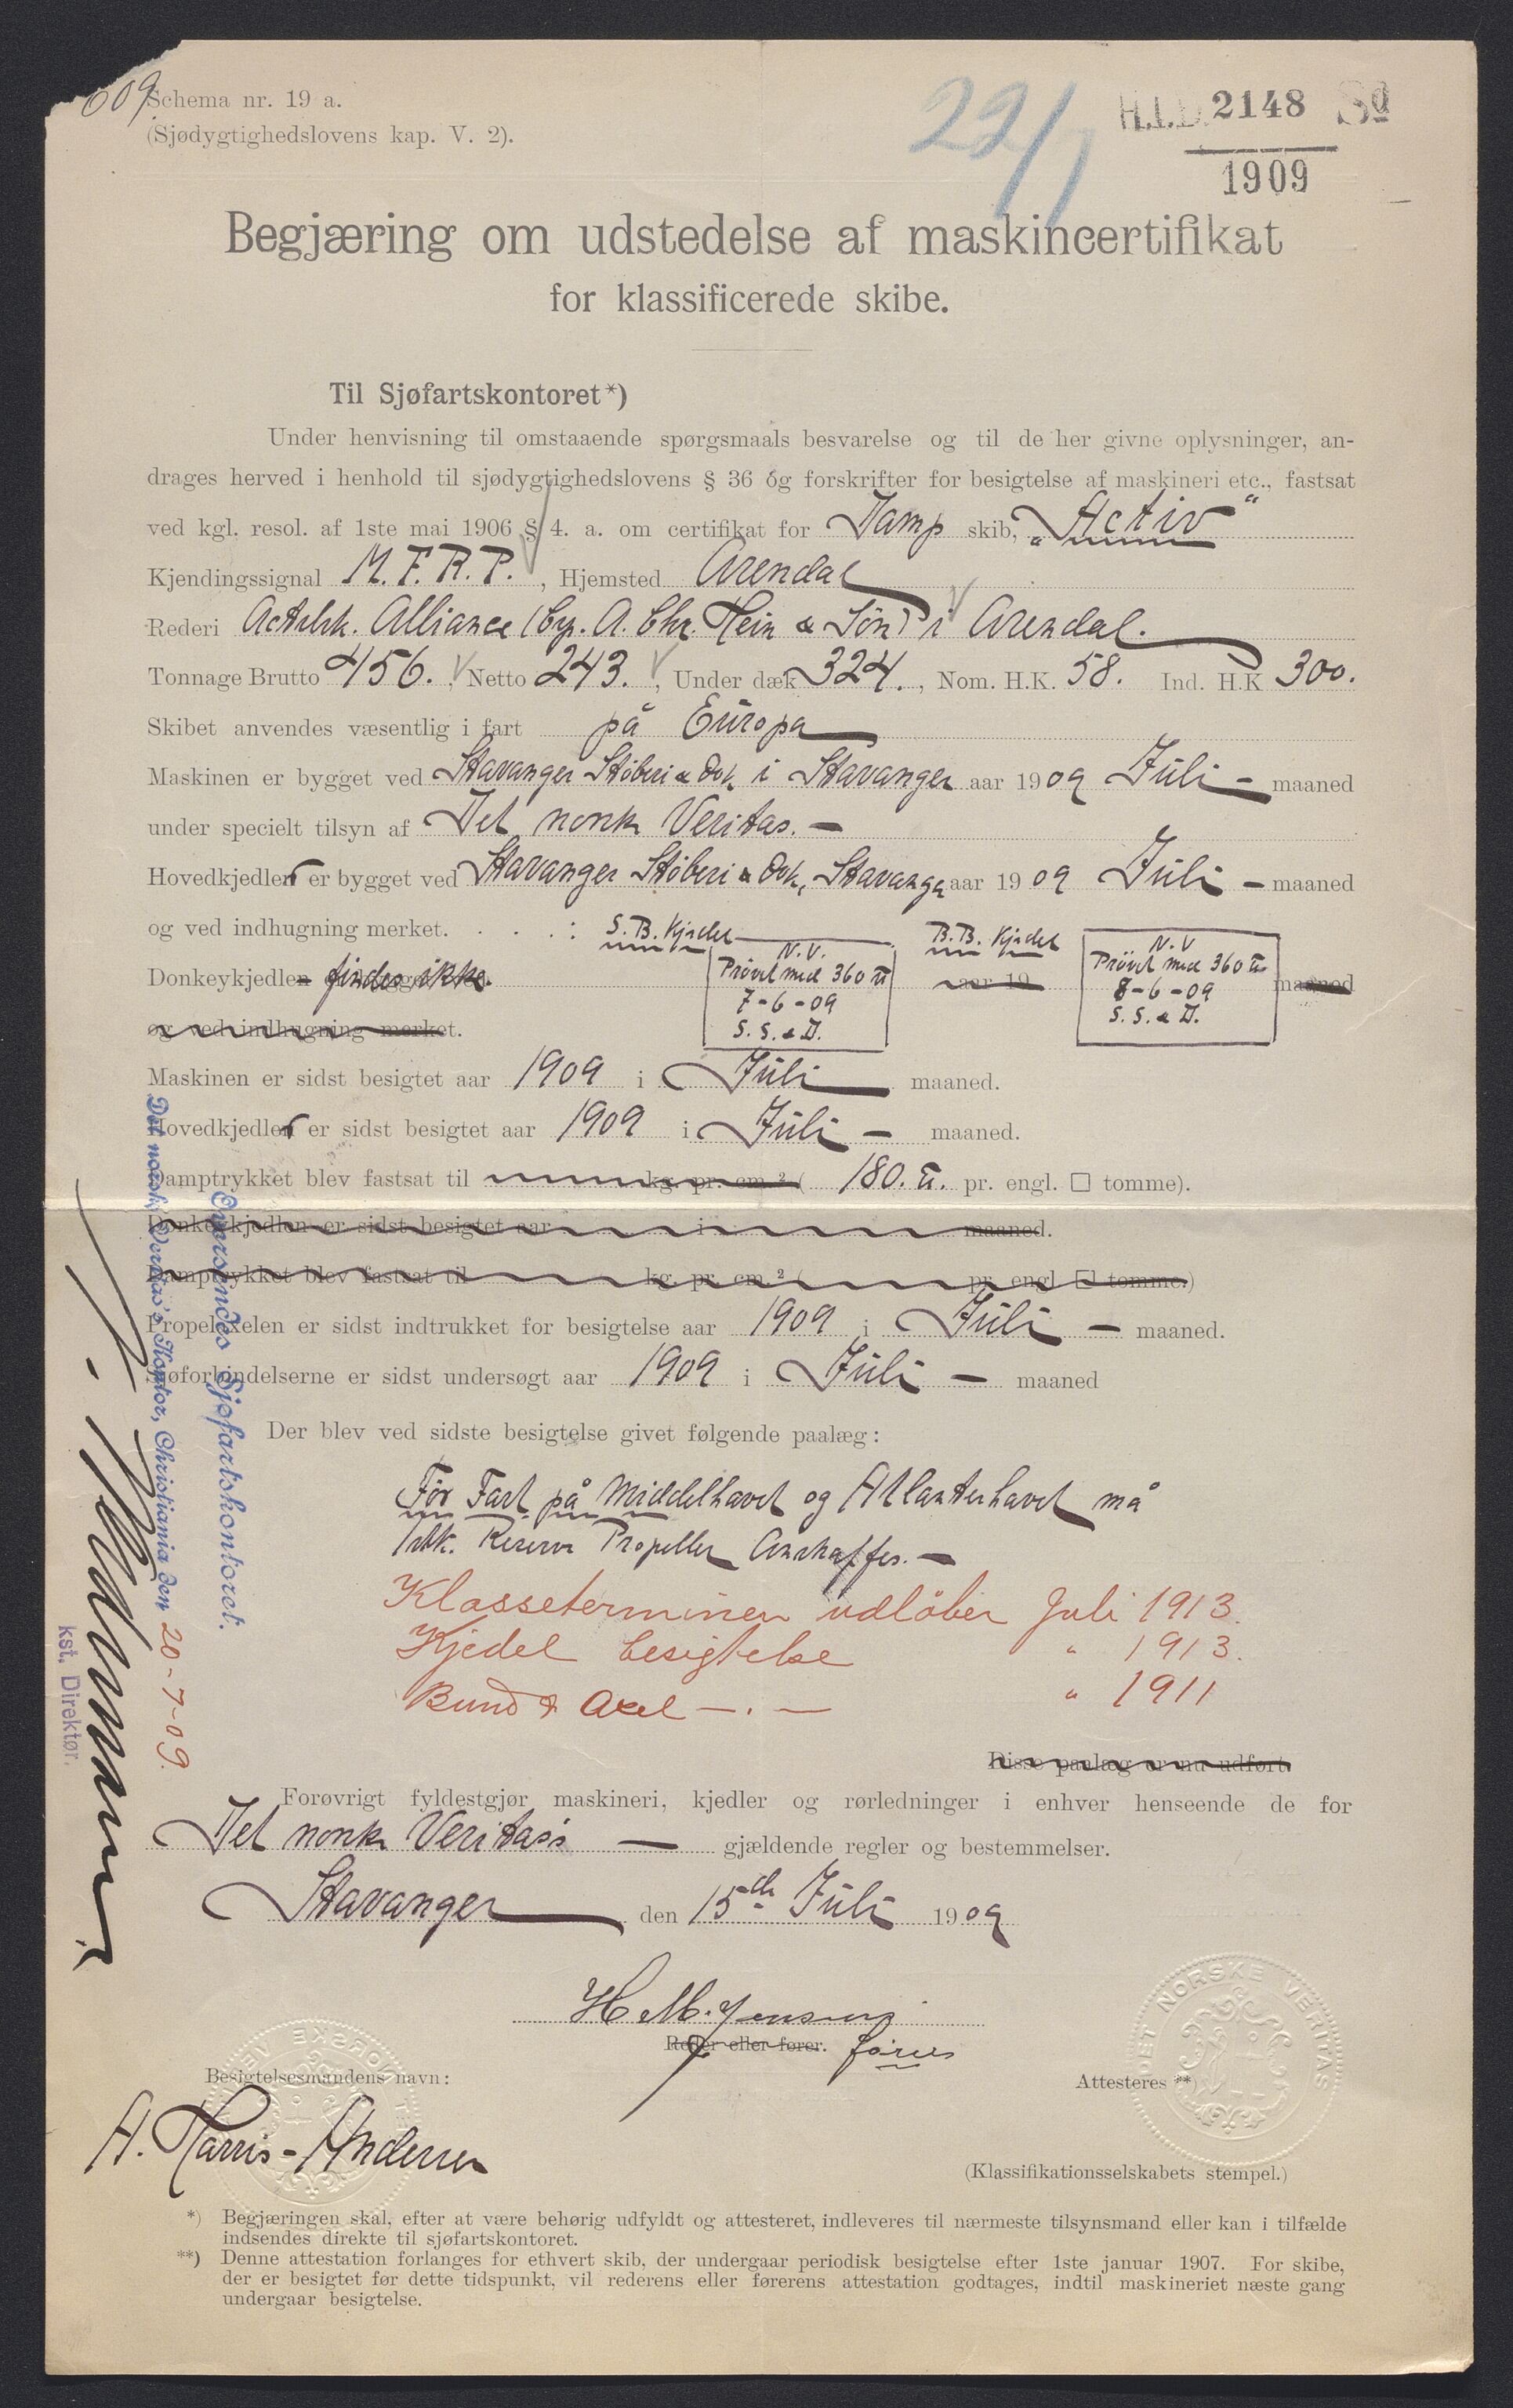 609
Schema nr. 19 a.
(Sjødygtighedslovens kap. V. 2).
29/7
H.I.D. 2148 Sø
1909
Begjæring om udstedelse af maskincertifikat
for klassificerede skibe.
Til Sjøfartskontoret*)
Under henvisning til omstaaende spørgsmaals besvarelse og til de her givne oplysninger, an-
drages herved i henhold til sjødygtighedslovens § 36 og forskrifter for besigtelse af maskineri etc., fastsat
ved kgl. resol. af 1ste mai 1906 § 4. a. om certifikat for Damp skib, „Activ“
Kjendingssignal M.F.R.P. , Hjemsted Arendal
Rederi Actslsk. Alliance (bγ. A. Chr. Hein & Søn) i Arendal.
Tonnage Brutto 456. , Netto 243. , Under dæk 324. , Nom. H.K. 58. Ind. H.K 300.
Skibet anvendes væsentlig i fart på Europa
Maskinen er bygget ved Stavanger Støberi & Dok i Stavanger aar 1909 Juli – maaned
under specielt tilsyn af Det norsk Veritas. –
Hovedkjedler er bygget ved Stavanger Støberi & Dok, Stavanger aar 1909 Juli – maaned
og ved indhugning merket. . . . : S.B. Kjedel B.B. Kjedel
N.V.
Prövet med 360 ℔
7-6-09
S. S. & D.
N.V
Prövet med 360 ℔
8-6-09
S. S. & D.
Donkeykjedlen findes ikke. aar 19 maaned
og ved indhugning merket.
Maskinen er sidst besigtet aar 1909 i Juli maaned.
Hovedkjedler er sidst besigtet aar 1909 i Juli – maaned.
Damptrykket blev fastsat til kg. pr. cm.² ( 180. ℔. pr. engl. □ tomme).
Donkeykjedlen er sidst besigtet aar i maaned.
Damptrykket blev fastsat til kg. pr. cm.² ( pr. engl □ tomme.)
Propelaxelen er sidst indtrukket for besigtelse aar 1909 i Juli – maaned.
Sjøforbindelserne er sidst undersøgt aar 1909 i Juli – maaned
Der blev ved sidste besigtelse givet følgende paalæg:
För Fart på Middelhavet og Atlanterhavet må
1 stk. Reserve Propeller Anskaffes. –
Klasseterminen udløber Juli 1913.
Kjedel besigtelse " 1913.
Bund & Axel —.— " 1911
Disse paalæg er nu udført.
Forøvrigt fyldestgjør maskineri, kjedler og rørledninger i enhver henseende de for
Det norsk Veritas's — gjældende regler og bestemmelser.
Stavanger den 15de Juli 1909
H M. Jensen
Reder eller fører. fører
Besigtelsesmandens navn:
A. Harris-Andersen
Attesteres **)
DET NORSKE VERITAS
DET NORSKE VERITAS
(Klassifikationsselskabets stempel.)
*) Begjæringen skal, efter at være behørig udfyldt og attesteret, indleveres til nærmeste tilsynsmand eller kan i tilfælde
indsendes direkte til sjøfartskontoret.
**) Denne attestation forlanges for ethvert skib, der undergaar periodisk besigtelse efter 1ste januar 1907. For skibe,
der er besigtet før dette tidspunkt, vil rederens eller førerens attestation godtages, indtil maskineriet næste gang
undergaar besigtelse.
Oversendes Sjøfartskontoret.
Det norske Veritas's Kontor, Christiania den 20-7-09.
kst. Direktør.